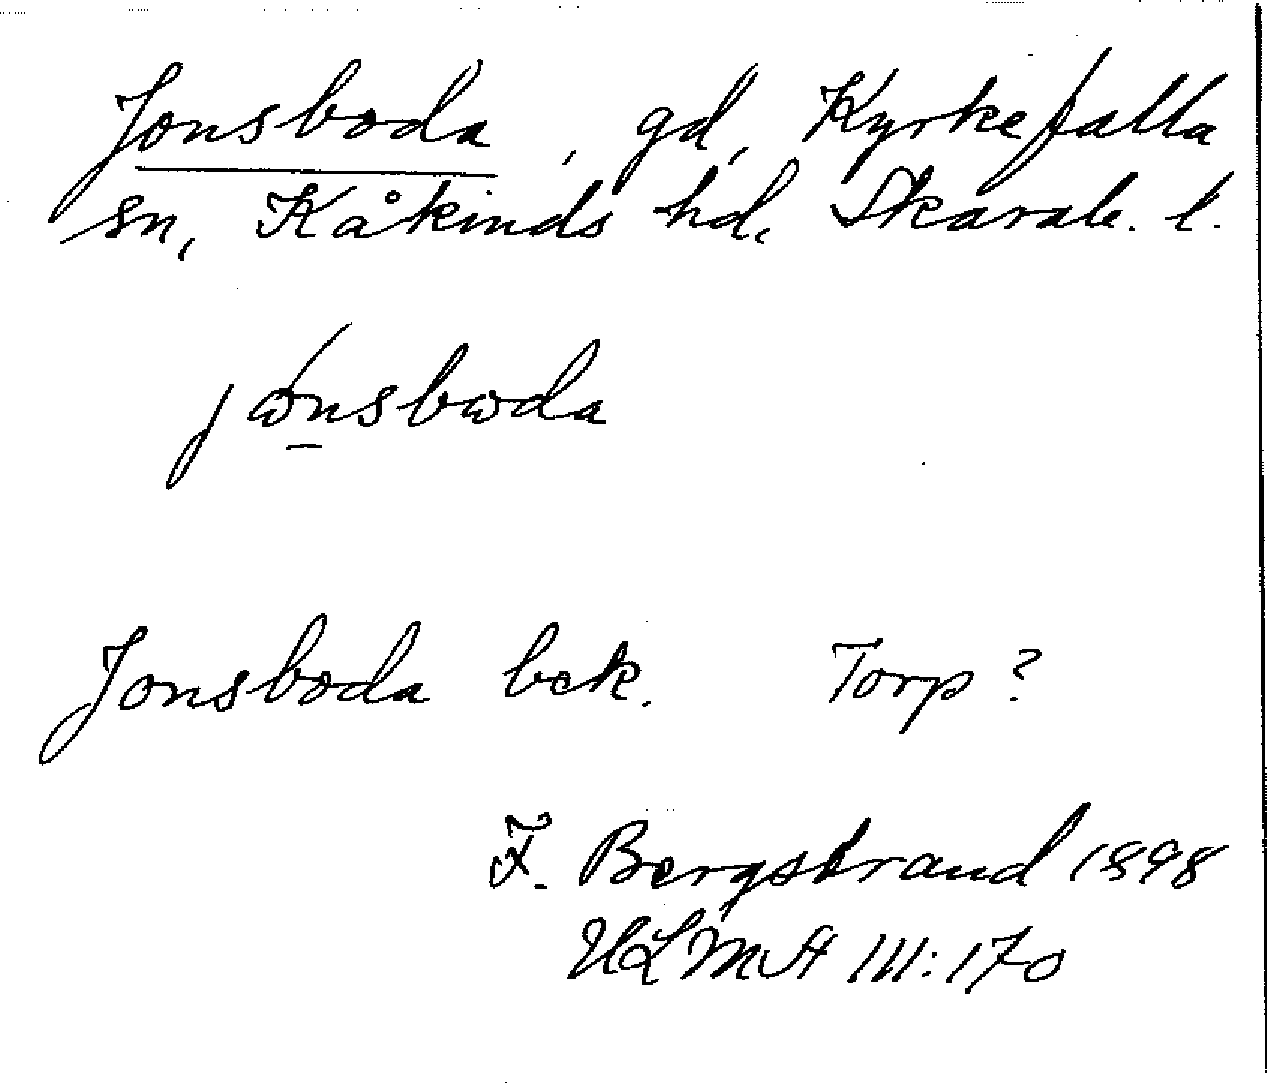 Jonsboda, gd, Kyrkefalla
sn, Kåkinds hd, Skarab. l.
jωnsbωda
Jonsboda bek. Torp?
F. Bergstrand 1898
ULMA 111:170